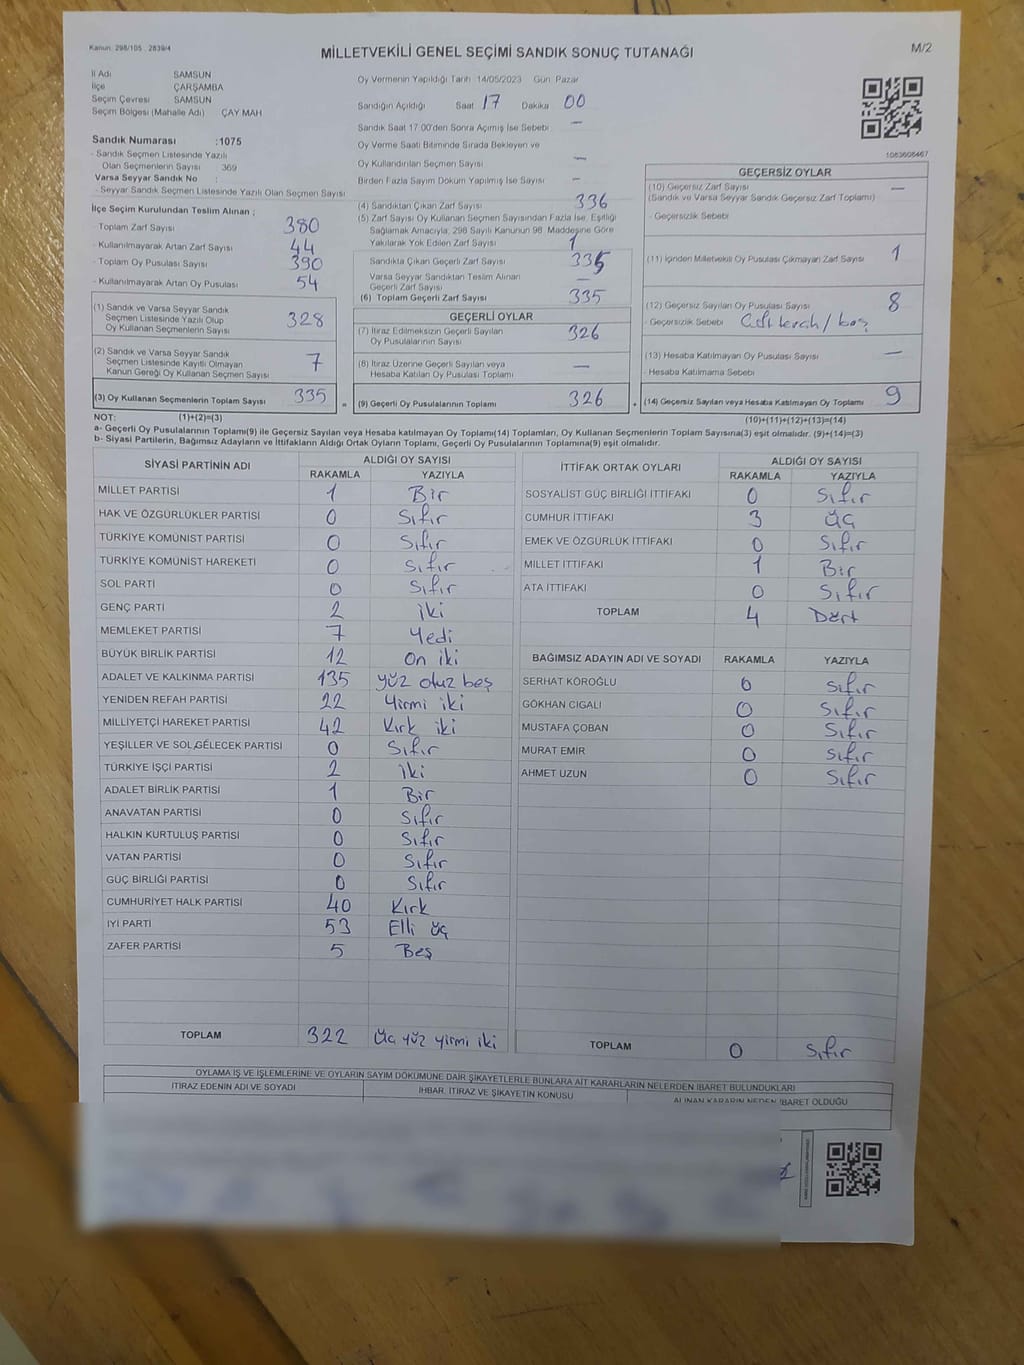 Kanun: 298/105 , 2839/4
MİLLETVEKİLİ GENEL SEÇİMİ SANDIK SONUÇ TUTANAĞI
M/2
İl Adı SAMSUN
İlçe ÇARŞAMBA
Seçim Çevresi SAMSUN
Seçim Bölgesi (Mahalle Adı) ÇAY MAH
Sandık Numarası :1075
- Sandık Seçmen Listesinde Yazılı
Olan Seçmenlerin Sayısı 369
Varsa Seyyar Sandık No :
- Seyyar Sandık Seçmen Listesinde Yazılı Olan Seçmen Sayısı
İlçe Seçim Kurulundan Teslim Alınan ;
- Toplam Zarf Sayısı 380
- Kullanılmayarak Artan Zarf Sayısı 44
- Toplam Oy Pusulası Sayısı 390
- Kullanılmayarak Artan Oy Pusulası 54
(1) Sandık ve Varsa Seyyar Sandık
Seçmen Listesinde Yazılı Olup
Oy Kullanan Seçmenlerin Sayısı 328
(2) Sandık ve Varsa Seyyar Sandık
Seçmen Listesinde Kayıtlı Olmayan
Kanun Gereği Oy Kullanan Seçmen Sayısı 7
(3) Oy Kullanan Seçmenlerin Toplam Sayısı 335
Oy Vermenin Yapıldığı Tarih 14/05/2023 Gün: Pazar
Sandığın Açıldığı Saat 17 Dakika 00
Sandık Saat 17.00'den Sonra Açımış İse Sebebi : —
Oy Verme Saati Bitiminde Sırada Bekleyen ve
Oy Kullandırılan Seçmen Sayısı —
Birden Fazla Sayım Döküm Yapılmış İse Sayısı –
(4) Sandıktan Çıkan Zarf Sayısı 336
(5) Zarf Sayısı Oy Kullanan Seçmen Sayısından Fazla İse, Eşitliği
Sağlamak Amacıyla, 298 Sayılı Kanunun 98. Maddesine Göre
Yakılarak Yok Edilen Zarf Sayısı 1
Sandıkta Çıkan Geçerli Zarf Sayısı 335
Varsa Seyyar Sandıktan Teslim Alınan
Geçerli Zarf Sayısı —
(6) Toplam Geçerli Zarf Sayısı 335
GEÇERLİ OYLAR
(7) İtiraz Edilmeksizin Geçerli Sayılan
Oy Pusulalarının Sayısı 326
(8) İtiraz Üzerine Geçerli Sayılan veya
Hesaba Katılan Oy Pusulası Toplamı —
= (9) Geçerli Oy Pusulalarının Toplamı 326
1083606467
GEÇERSİZ OYLAR
(10) Geçersiz Zarf Sayısı —
(Sandık ve Varsa Seyyar Sandık Geçersiz Zarf Toplamı)
- Geçersizlik Sebebi
(11) İçinden Milletvekili Oy Pusulası Çıkmayan Zarf Sayısı 1
(12) Geçersiz Sayılan Oy Pusulası Sayısı 8
- Geçersizlik Sebebi Çift tercih/boş
(13) Hesaba Katılmayan Oy Pusulası Sayısı —
- Hesaba Katılmama Sebebi
+ (14) Geçersiz Sayılan veya Hesaba Katılmayan Oy Toplamı 9
NOT: (1)+(2)=(3) (10)+(11)+(12)+(13)=(14)
a- Geçerli Oy Pusulalarının Toplamı(9) ile Geçersiz Sayılan veya Hesaba katılmayan Oy Toplamı(14) Toplamları, Oy Kullanan Seçmenlerin Toplam Sayısına(3) eşit olmalıdır. (9)+(14)=(3)
b- Siyasi Partilerin, Bağımsız Adayların ve İttifakların Aldığı Ortak Oyların Toplamı, Geçerli Oy Pusulalarının Toplamına(9) eşit olmalıdır.
SİYASİ PARTİNİN ADI ALDIĞI OY SAYISI
RAKAMLA YAZIYLA
MİLLET PARTİSİ 1 Bir
HAK VE ÖZGÜRLÜKLER PARTİSİ 0 Sıfır
TÜRKİYE KOMÜNİST PARTİSİ 0 Sıfır
TÜRKİYE KOMÜNİST HAREKETİ 0 Sıfır
SOL PARTİ 0 Sıfır
GENÇ PARTİ 2 iki
MEMLEKET PARTİSİ 7 Yedi
BÜYÜK BİRLİK PARTİSİ 12 On iki
ADALET VE KALKINMA PARTİSİ 135 yüz otuz beş
YENİDEN REFAH PARTİSİ 22 Yirmi iki
MİLLİYETÇİ HAREKET PARTİSİ 42 Kırk iki
YEŞİLLER VE SOL GELECEK PARTİSİ 0 Sıfır
TÜRKİYE İŞÇİ PARTİSİ 2 iki
ADALET BİRLİK PARTİSİ 1 Bir
ANAVATAN PARTİSİ 0 Sıfır
HALKIN KURTULUŞ PARTİSİ 0 Sıfır
VATAN PARTİSİ 0 Sıfır
GÜÇ BİRLİĞİ PARTİSİ 0 Sıfır
CUMHURİYET HALK PARTİSİ 40 Kırk
İYİ PARTİ 53 Elli üç
ZAFER PARTİSİ 5 Beş
TOPLAM 322 Üç yüz yirmi iki
İTTİFAK ORTAK OYLARI ALDIĞI OY SAYISI
RAKAMLA YAZIYLA
SOSYALİST GÜÇ BİRLİĞİ İTTİFAKI 0 Sıfır
CUMHUR İTTİFAKI 3 Üç
EMEK VE ÖZGÜRLÜK İTTİFAKI 0 Sıfır
MİLLET İTTİFAKI 1 Bir
ATA İTTİFAKI 0 Sıfır
TOPLAM 4 Dört
BAĞIMSIZ ADAYIN ADI VE SOYADI RAKAMLA YAZIYLA
SERHAT KÖROĞLU 0 sıfır
GÖKHAN CIGALI 0 Sıfır
MUSTAFA ÇOBAN 0 Sıfır
MURAT EMİR 0 sıfır
AHMET UZUN 0 Sıfır
TOPLAM 0 Sıfır
OYLAMA İŞ VE İŞLEMLERİNE VE OYLARIN SAYIM DÖKÜMÜNE DAİR ŞİKAYETLERLE BUNLARA AİT KARARLARIN NELERDEN İBARET BULUNDUKLARI
İTİRAZ EDENİN ADI VE SOYADI İHBAR, İTİRAZ VE ŞİKAYETİN KONUSU ALINAN KARARIN NEDEN İBARET OLDUĞU